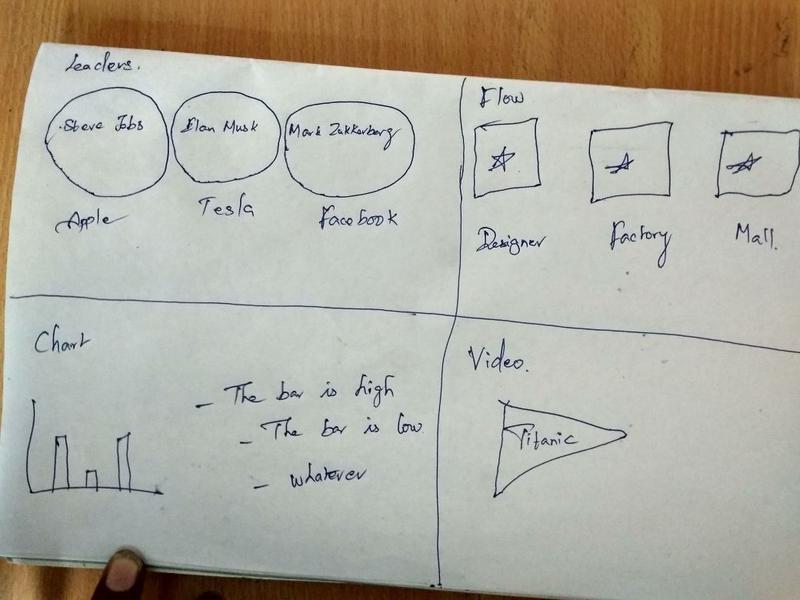 Leaders.
Steve Jobs
Elan Musk
Mark Zukkerberg
Apple
Tesla
Facebook
Flow
Designer
Factory
Mall.
Chart
- The bar is high
- The bar is low
- whatever
Video.
Titanic